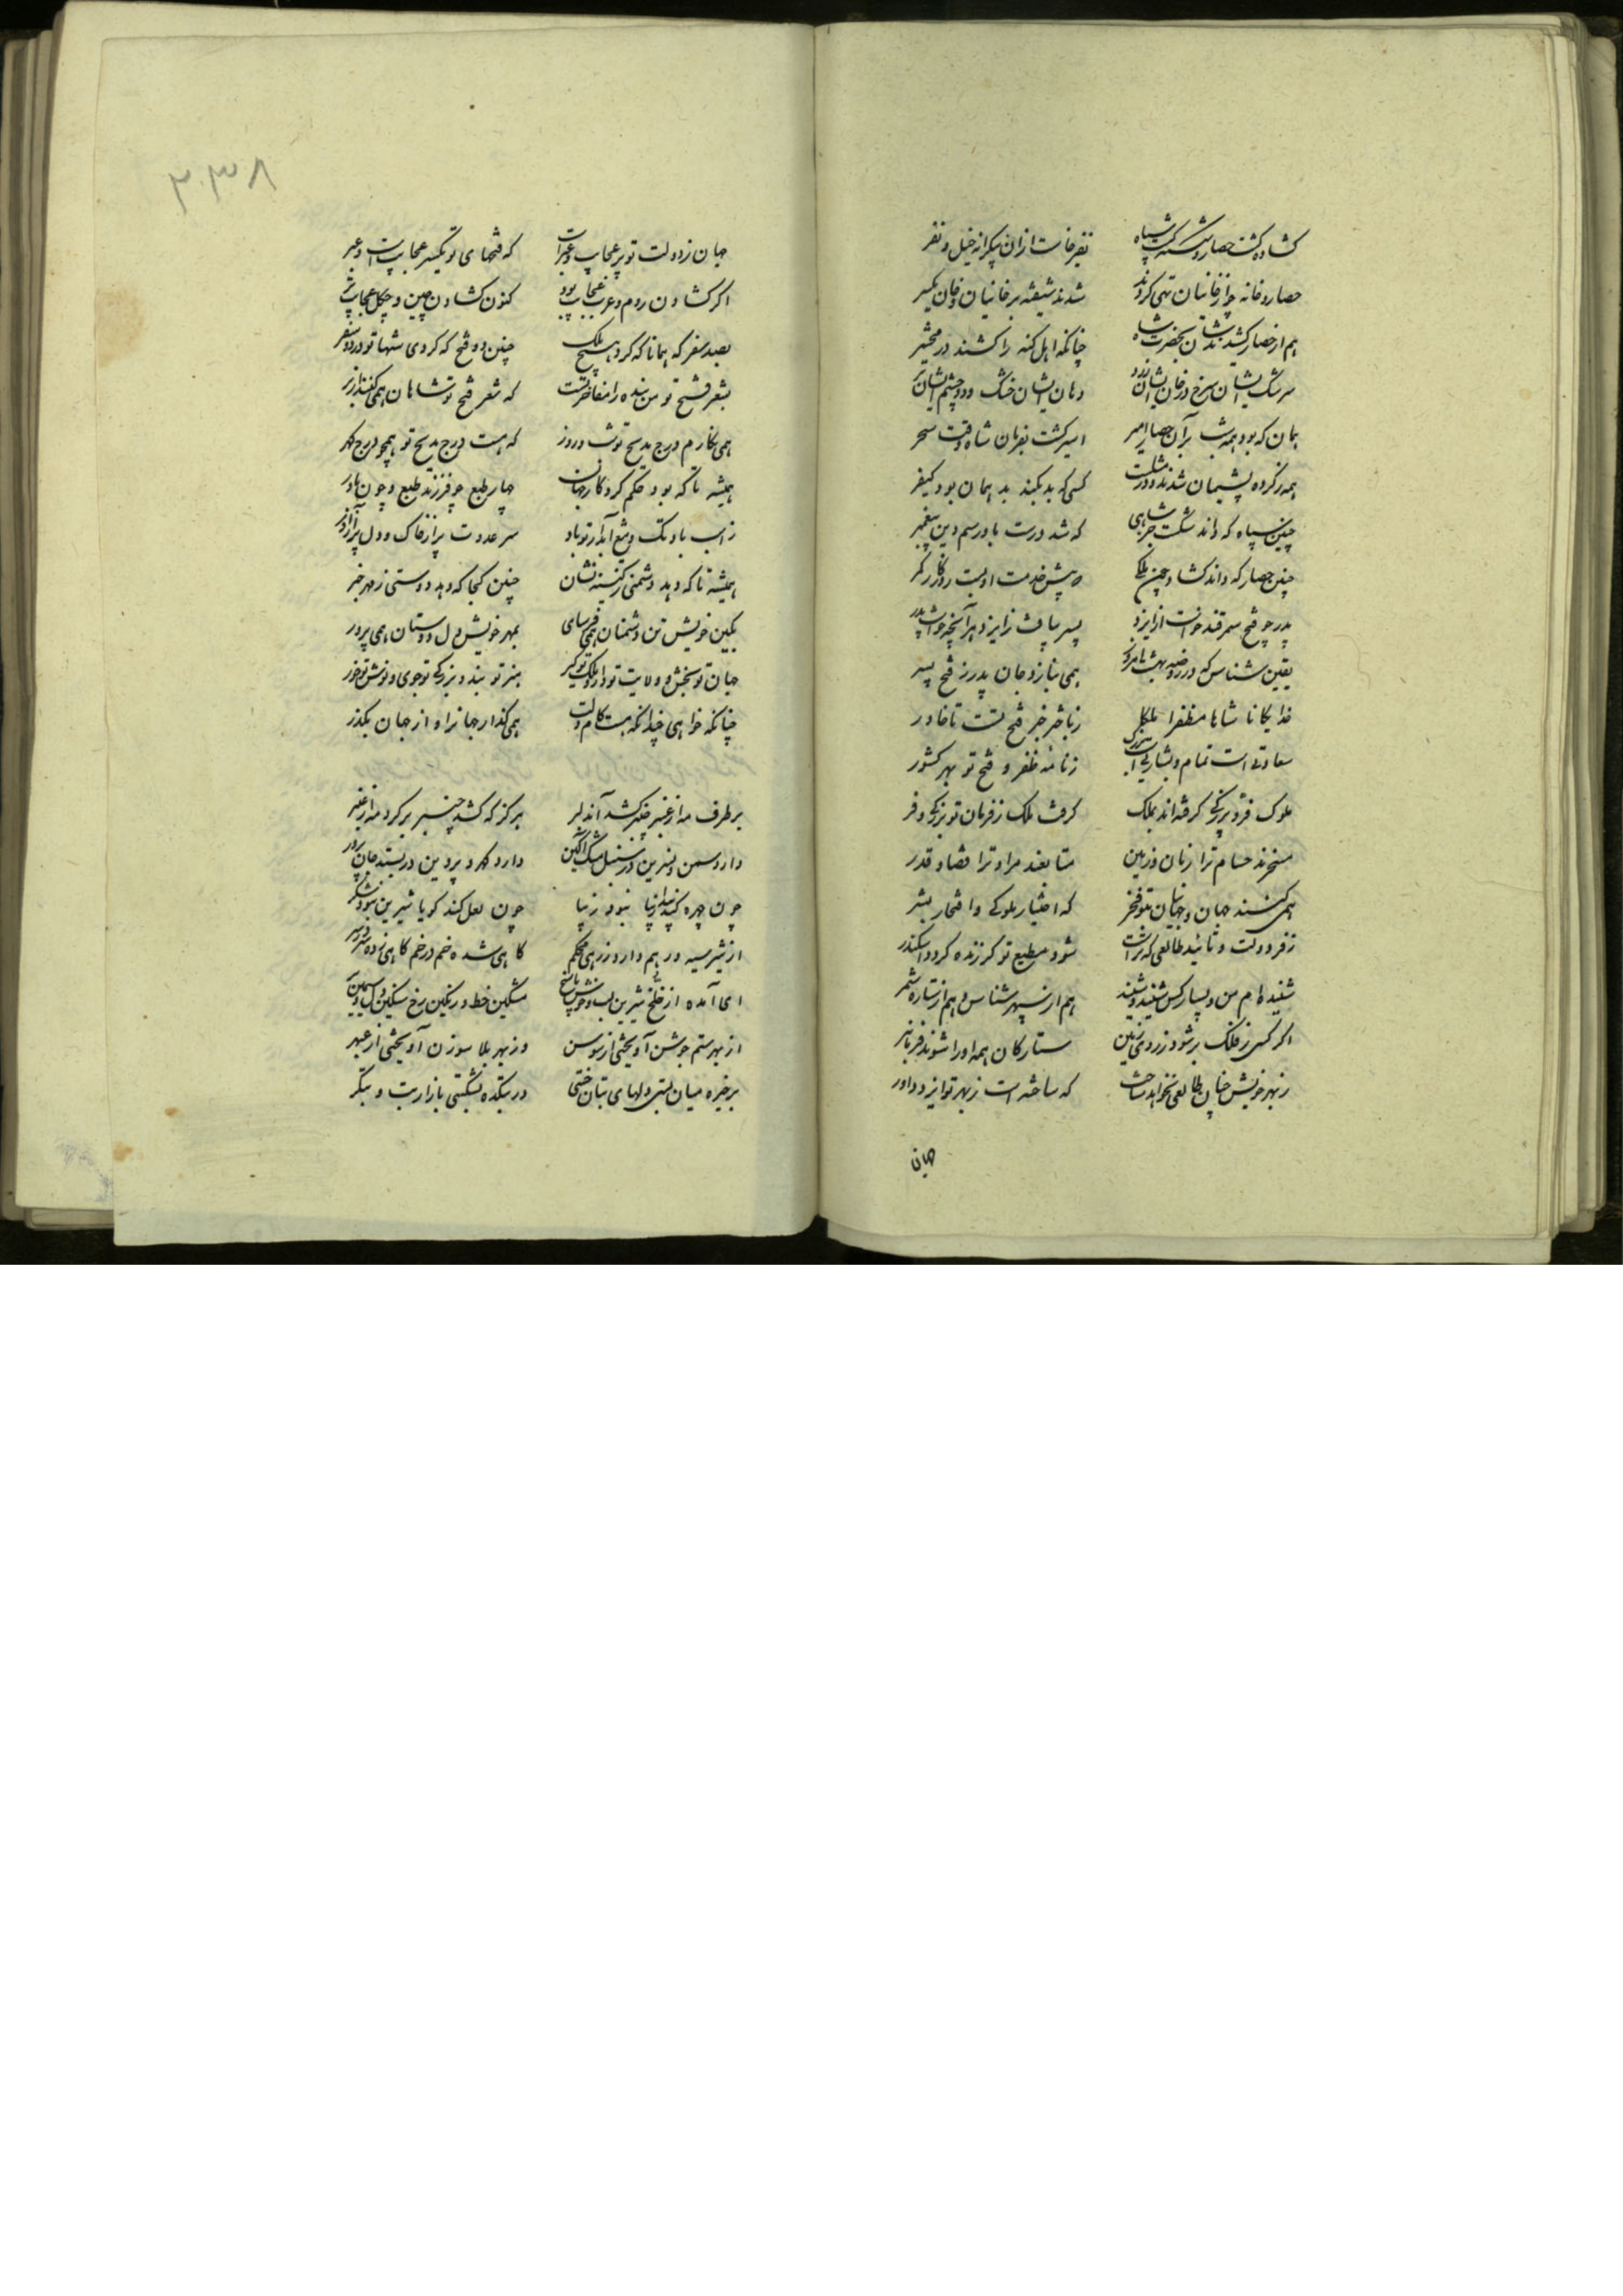 کشاده کشت حصار و شکسته کشت سپاه نفیر خاست ازان بیکرانه خیل و نفر
حصار و خانه چو از خانیان تهی کردند شدند شیفته بر خانیان و خان یکسر
هم از حصار کشیدندشان بحضرت شاه چنانکه اهل کنه را کشند در محشر
سرشک ایشان سرخ و رخان ایشان زرد دهان ایشان خشک و دو چشم ایشان تر
همان که بود همه شب بر آن حصار امیر اسیر کشت بفرمان شاه وقت سحر
همه ز کرده پشیمان شدند و در مثلست کسی که بد بکند بد همان بود کیفر
چنین سپاه که داند شکست جز شاهی که شد درست باو رسم دین پیغمبر
چنین حصار که داند کشاد جز ملکی که پیش خدمت او بست روزکار کمر
پدر چو فتح سمرقند خواست از ایزد پسر بیافت ز ایزد هر آنچه خواست پدر
یقین شناس که در روضه بهشت امروز همی بنازد جان پدر ز فتح پسر
خدایکانا شاها مظفرا ملکا ز باختر خبر فتح تست تا خاور
سعادتی است تمام و بشارتی است بزرک ز نامه ظفر و فتح تو بهر کشور
ملوک فر و بزرکی کرفته‌اند بملک کرفت ملک ز فرمان تو بزرکی و فر
مسخرند حسام ترا زمان و زمین متابعند مراد ترا قضا و قدر
همی کنند جهان و جهانیان بتو فخر که اختیار ملوکی و افتخار بشر
ز فر دولت و تائید طالعی که تراست شود مطیع تو کر زنده کردد اسکندر
شنیده‌ام من و بسیار کس شنید و شنید هم از سپهر شناس و هم از ستاره شمر
اکر کسی ز فلک بر شود ز روی زمین ستارکان همه او را شوند فرمانبر
ز بهر خویش چنان طالعی نخواهد ساخت که ساخته است ز بهر تو ایزد داور
جهان
۲۰۳۸
جهان ز دولت تو پر عجایب و عبر است که فتحهای تو یکسر عجایب است و عبر
اکر کشادن روم و عرب عجایب بود کنون کشادن چین و چکل عجایب تر
بصد سفر که همانا که کرد هیچ ملک چنین دو فتح که کردی شها تو در دو سفر
بشعر فتح تو من بنده را مفاخرتست که شعر فتح تو شاهان همی کنند از بر
همی نکارم درج مدیح تو شب و روز که هست درج مدیح تو همچو درج کهر
همیشه تا که بود حکم کردکار جهان چهار طبع چو فرزند طبع و چون مادر
ز اسب باد تک و تیغ آبدار تو باد سر عدوت پر از خاک و دل پر از آذر
همیشه تا که دهد دشمنی ز کینه نشان چنین کجا که دهد دوستی ز مهر خبر
بکین خویش تن دشمنان همی فرسای بمهر خویش دل دوستان همی پرور
جهان تو بخش و ولایت تو دار و ملک تو کیر هنر تو بند و بزرکی تو جوی و نوش تو خور
چنانکه خواهی چندانکه هست کام دلت همی کذار جهانرا و از جهان مکذر
بر طرف مه از عنبر چنبر کشد آن دلبر هرکز که کشد چنبر بر کرد مه از عنبر
دارد سمن و نسرین در سنبل مشک آکین دارد کهر و پروین در بسد جان پرور
چون چهره کند پیدا زیبا نبود زیبا چون لعل کند کویا شیرین نبود شکر
از شیر سیه در هم دارد زرهی محکم کاهی شده خم در خم کاهی زده سر در سر
ای آمده از خلخ شیرین لب و خوش پاسخ مشکین خط و رنکین رخ سنکین دل و سیمین بر
از بهر ستم جوشن آویختی از سوسن وز بهر بلا سوزن آویختی از عبهر
بر خیره میان بستی دلهای بتان خستی در بتکده بشکستی بازار بت و بتکر